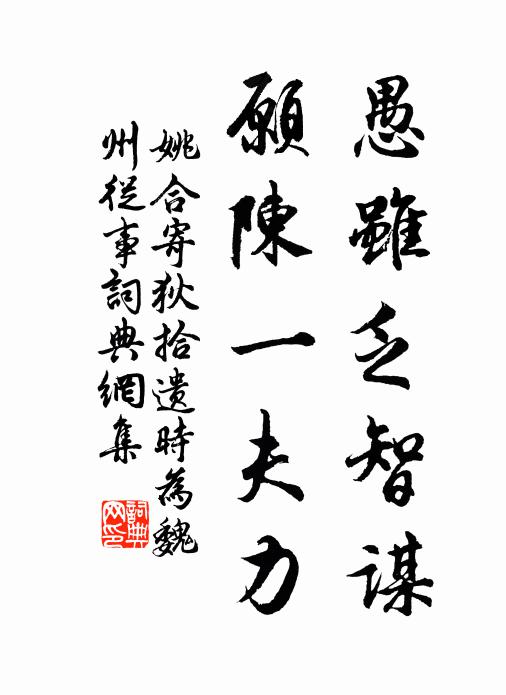 愚雖乏智謀
願陳一夫力
姚合寄狄拾遺時為魏
州從事詞典網集
詞典
网印